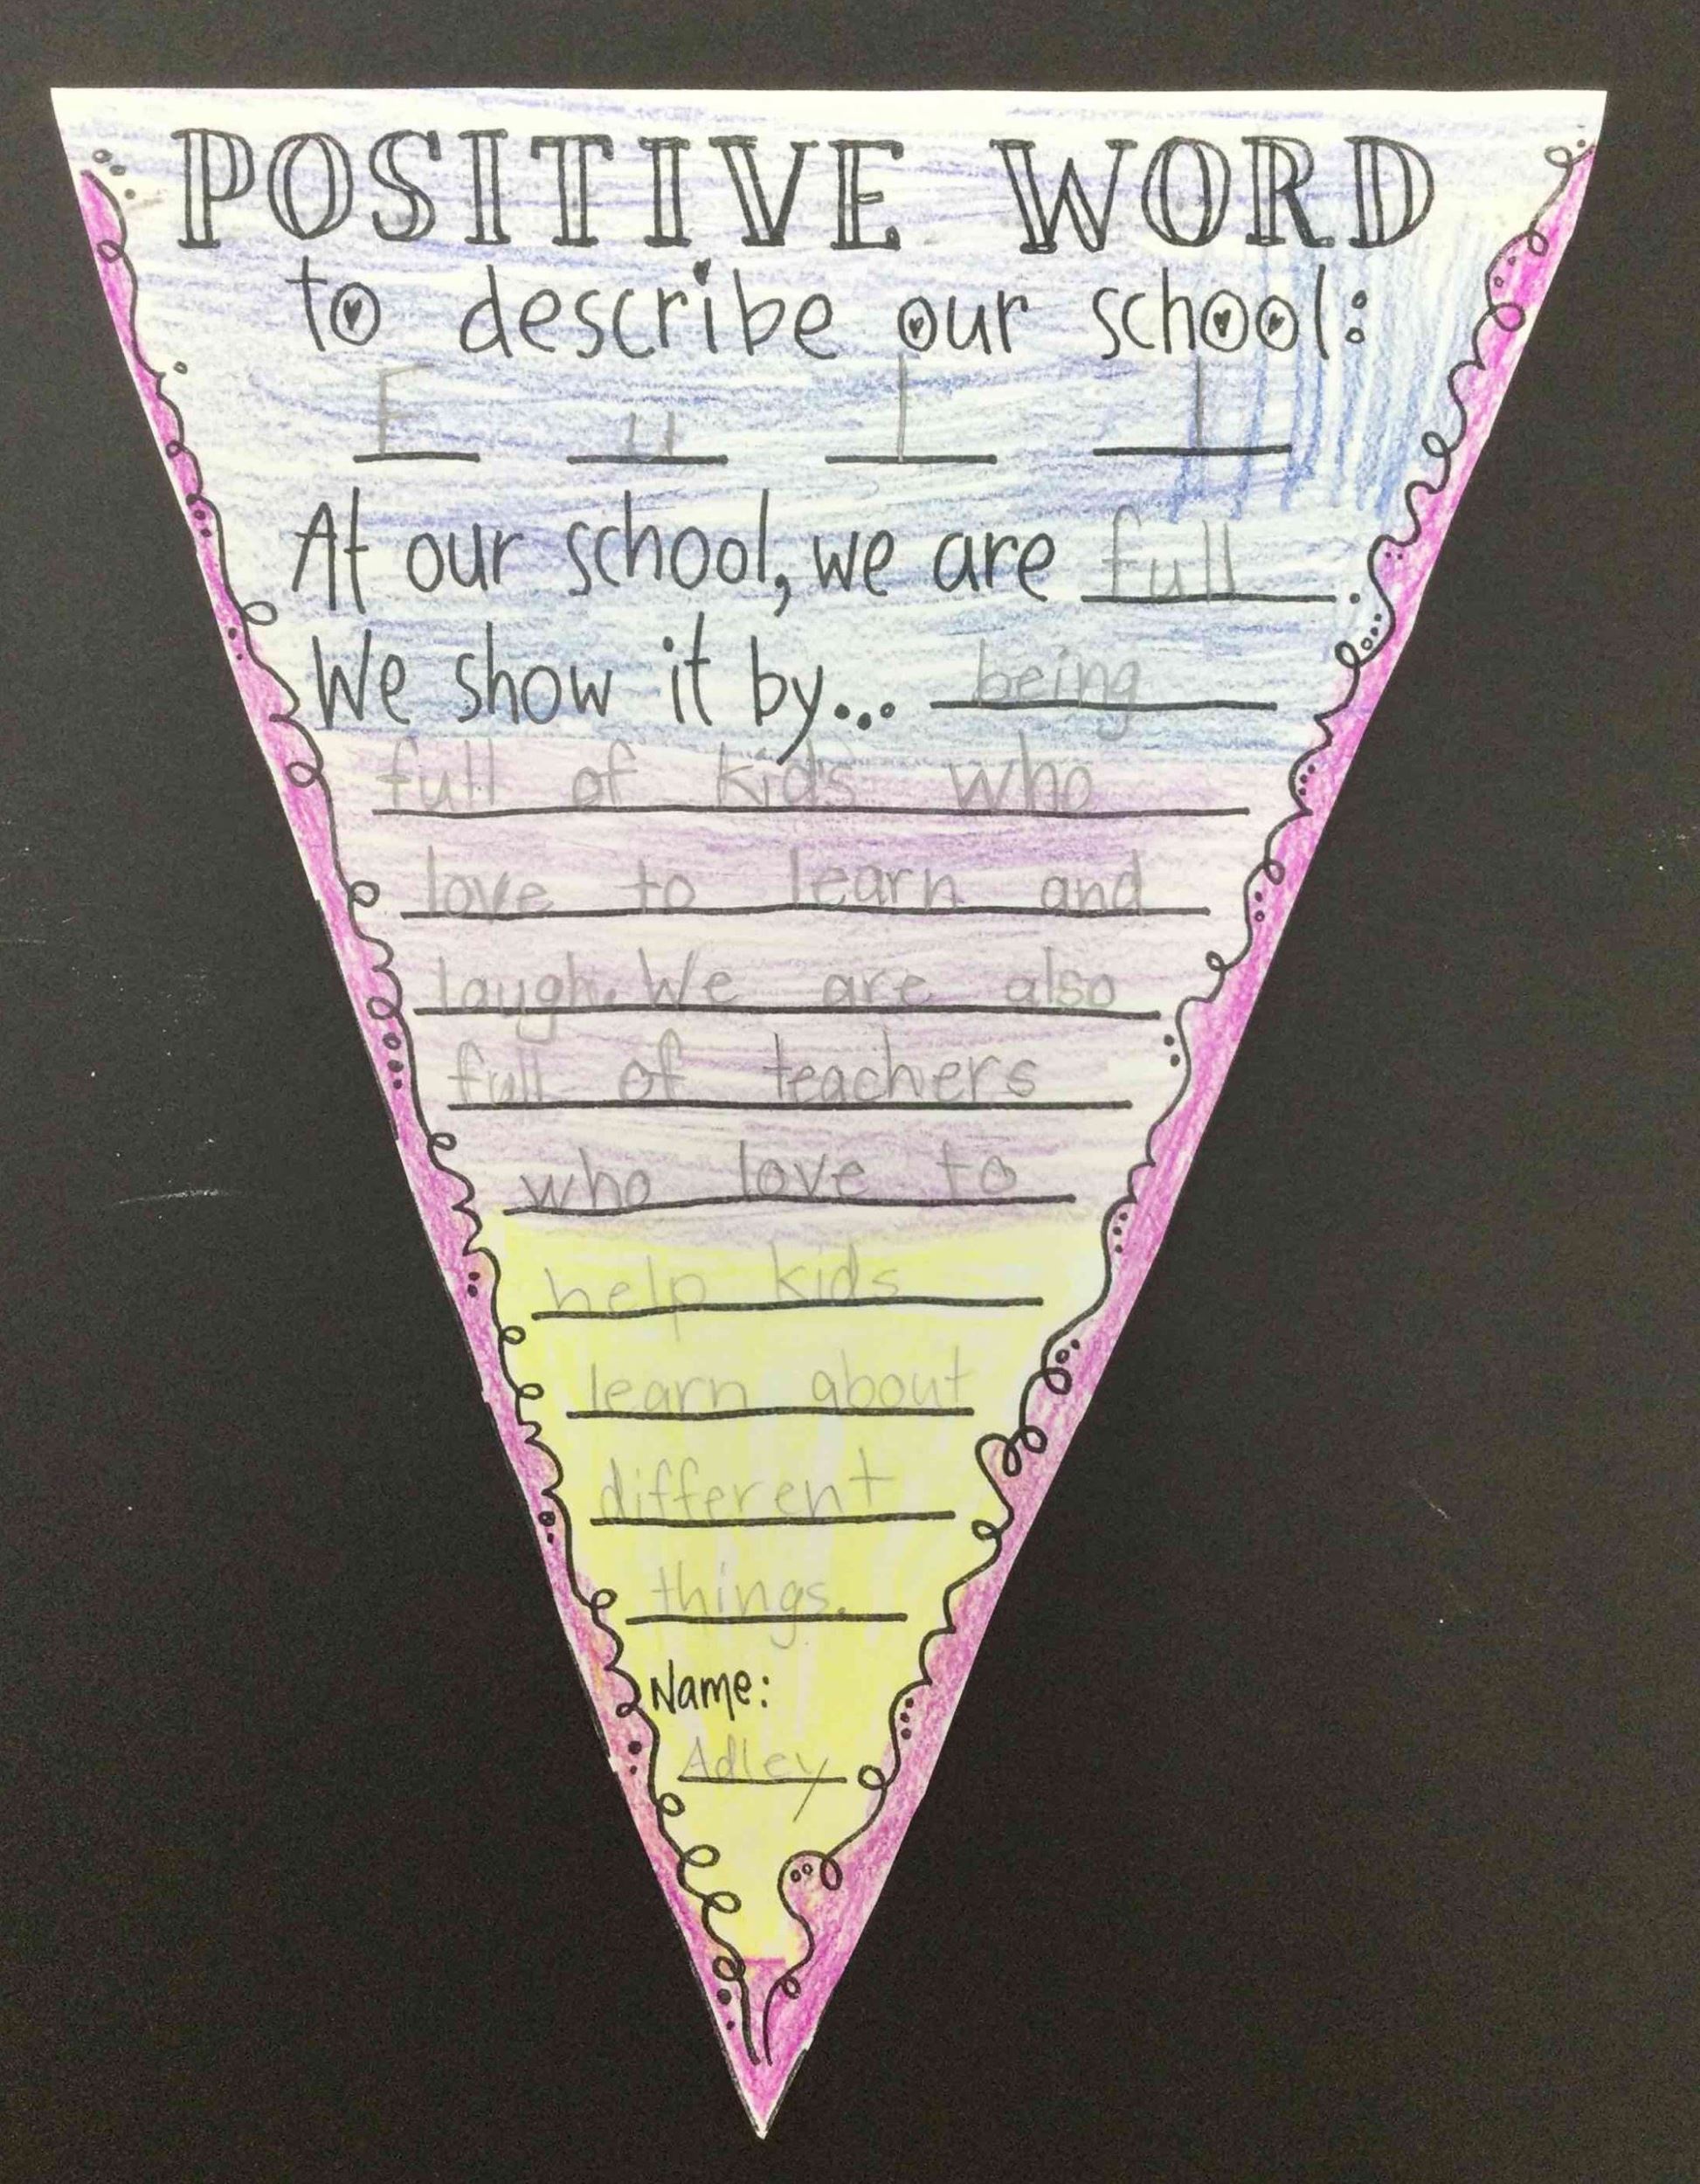 POSITIVE WORD
to describe our school:
F u l l
At our school, we are full.
We show it by... being
full of kids who
love to learn and
laugh. We are also
full of teachers
who love to
help kids
learn about
different
things.
Name:
Adley